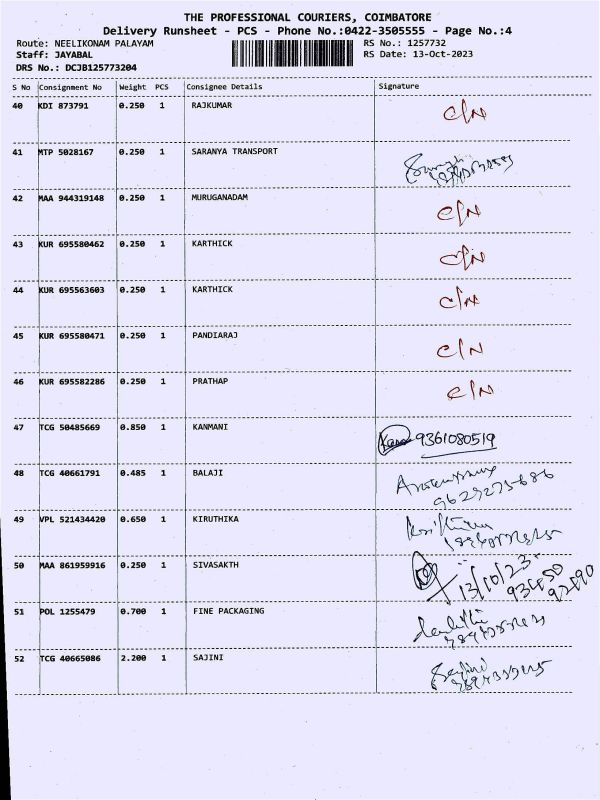 THE PROFESSIONAL COURIERS, COIMBATORE
Delivery Runsheet - PCS - Phone No.:0422-3505555 - Page No.:4
Route: NEELIKONAM PALAYAM RS No.: 1257732
Staff: JAYABAL RS Date: 13-Oct-2023
DRS No.: DCJB125773204
S No Consignment No Weight PCS Consignee Details Signature
40 KDI 873791 0.250 1 RAJKUMAR C/N
41 MTP 5028167 0.250 1 SARANYA TRANSPORT
42 MAA 944319148 0.250 1 MURUGANADAM C/N
43 KUR 695580462 0.250 1 KARTHICK C/N
44 KUR 695563603 0.250 1 KARTHICK C/N
45 KUR 695580471 0.250 1 PANDIARAJ C/N
46 KUR 695582286 0.250 1 PRATHAP C/N
47 TCG 50485669 0.850 1 KANMANI 9361080519
48 TCG 40661791 0.485 1 BALAJI
9629275686
49 VPL 521434420 0.650 1 KIRUTHIKA
50 MAA 861959916 0.250 1 SIVASAKTH 13/10/23
93450
92890
51 POL 1255479 0.700 1 FINE PACKAGING
52 TCG 40665086 2.200 1 SAJINI